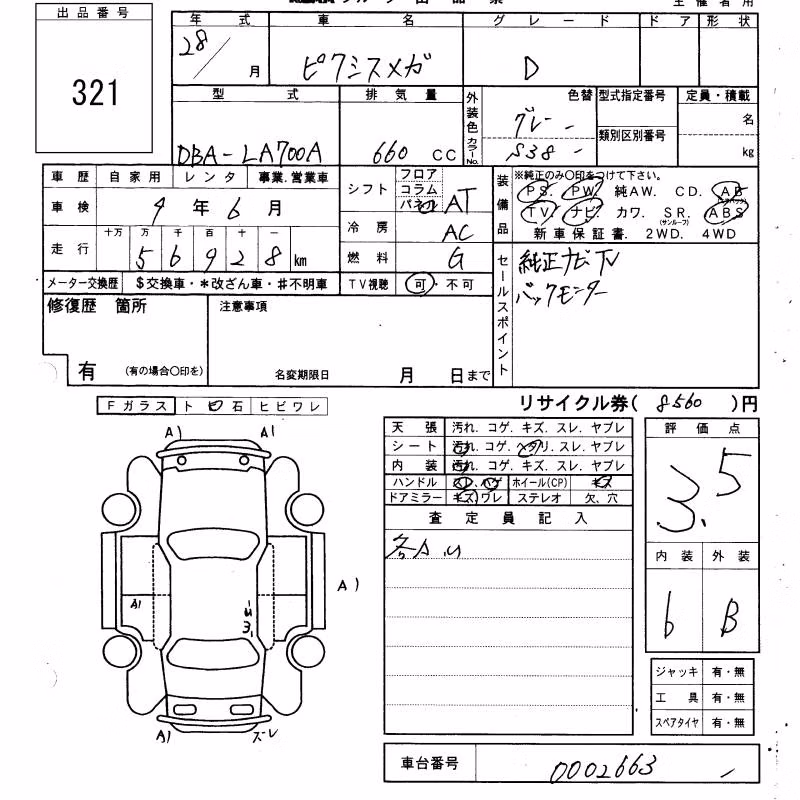 出品番号
321
年 式 車 名 グ レ ー ド ド ア 形 状
28/ 月 ピクシスメガ D
型 式 排 気 量 外装色 カラーNo. 色替 型式指定番号 定員・積載
DBA-LA700A 660 CC グレー S38 類別区別番号 名 kg
車 歴 自家用 レンタ 事業.営業車
車 検 4 年 6 月
走 行 十万 万 千 百 十 一
5 6 9 2 8 km
シフト フロア コラム パネル AT
冷 房 AC
燃 料 G
装備品 ※純正のみ○印をつけて下さい。
PS. PW. 純AW. CD. AB
TV. ナビ. カワ. SR.(サンルーフ) ABS
新車保証書. 2WD. 4WD
メーター交換歴 $交換車・*改ざん車・#不明車 TV視聴 可・不可
セールスポイント 純正ナビTV
バックモニター
修復歴 箇所 注意事項
有 (有の場合○印を) 名変期限日 月 日まで
リサイクル券( 8560 )円
Fガラス ト ビ 石 ヒビワレ
天 張 汚れ. コゲ. キズ. スレ. ヤブレ
シート 汚れ. コゲ. ヘタリ. スレ. ヤブレ
内 装 汚れ. コゲ. キズ. スレ. ヤブレ
ハンドル スレ、ハゲ ホイール(CP) キズ
ドアミラー キズ ワレ ステレオ 欠、穴
査 定 員 記 入
各A.U
評 価 点
3.5
内 装 外 装
6 B
ジャッキ 有・無
工 具 有・無
スペアタイヤ 有・無
車台番号 0002663
A) A)
A1
A)
A) ズレ